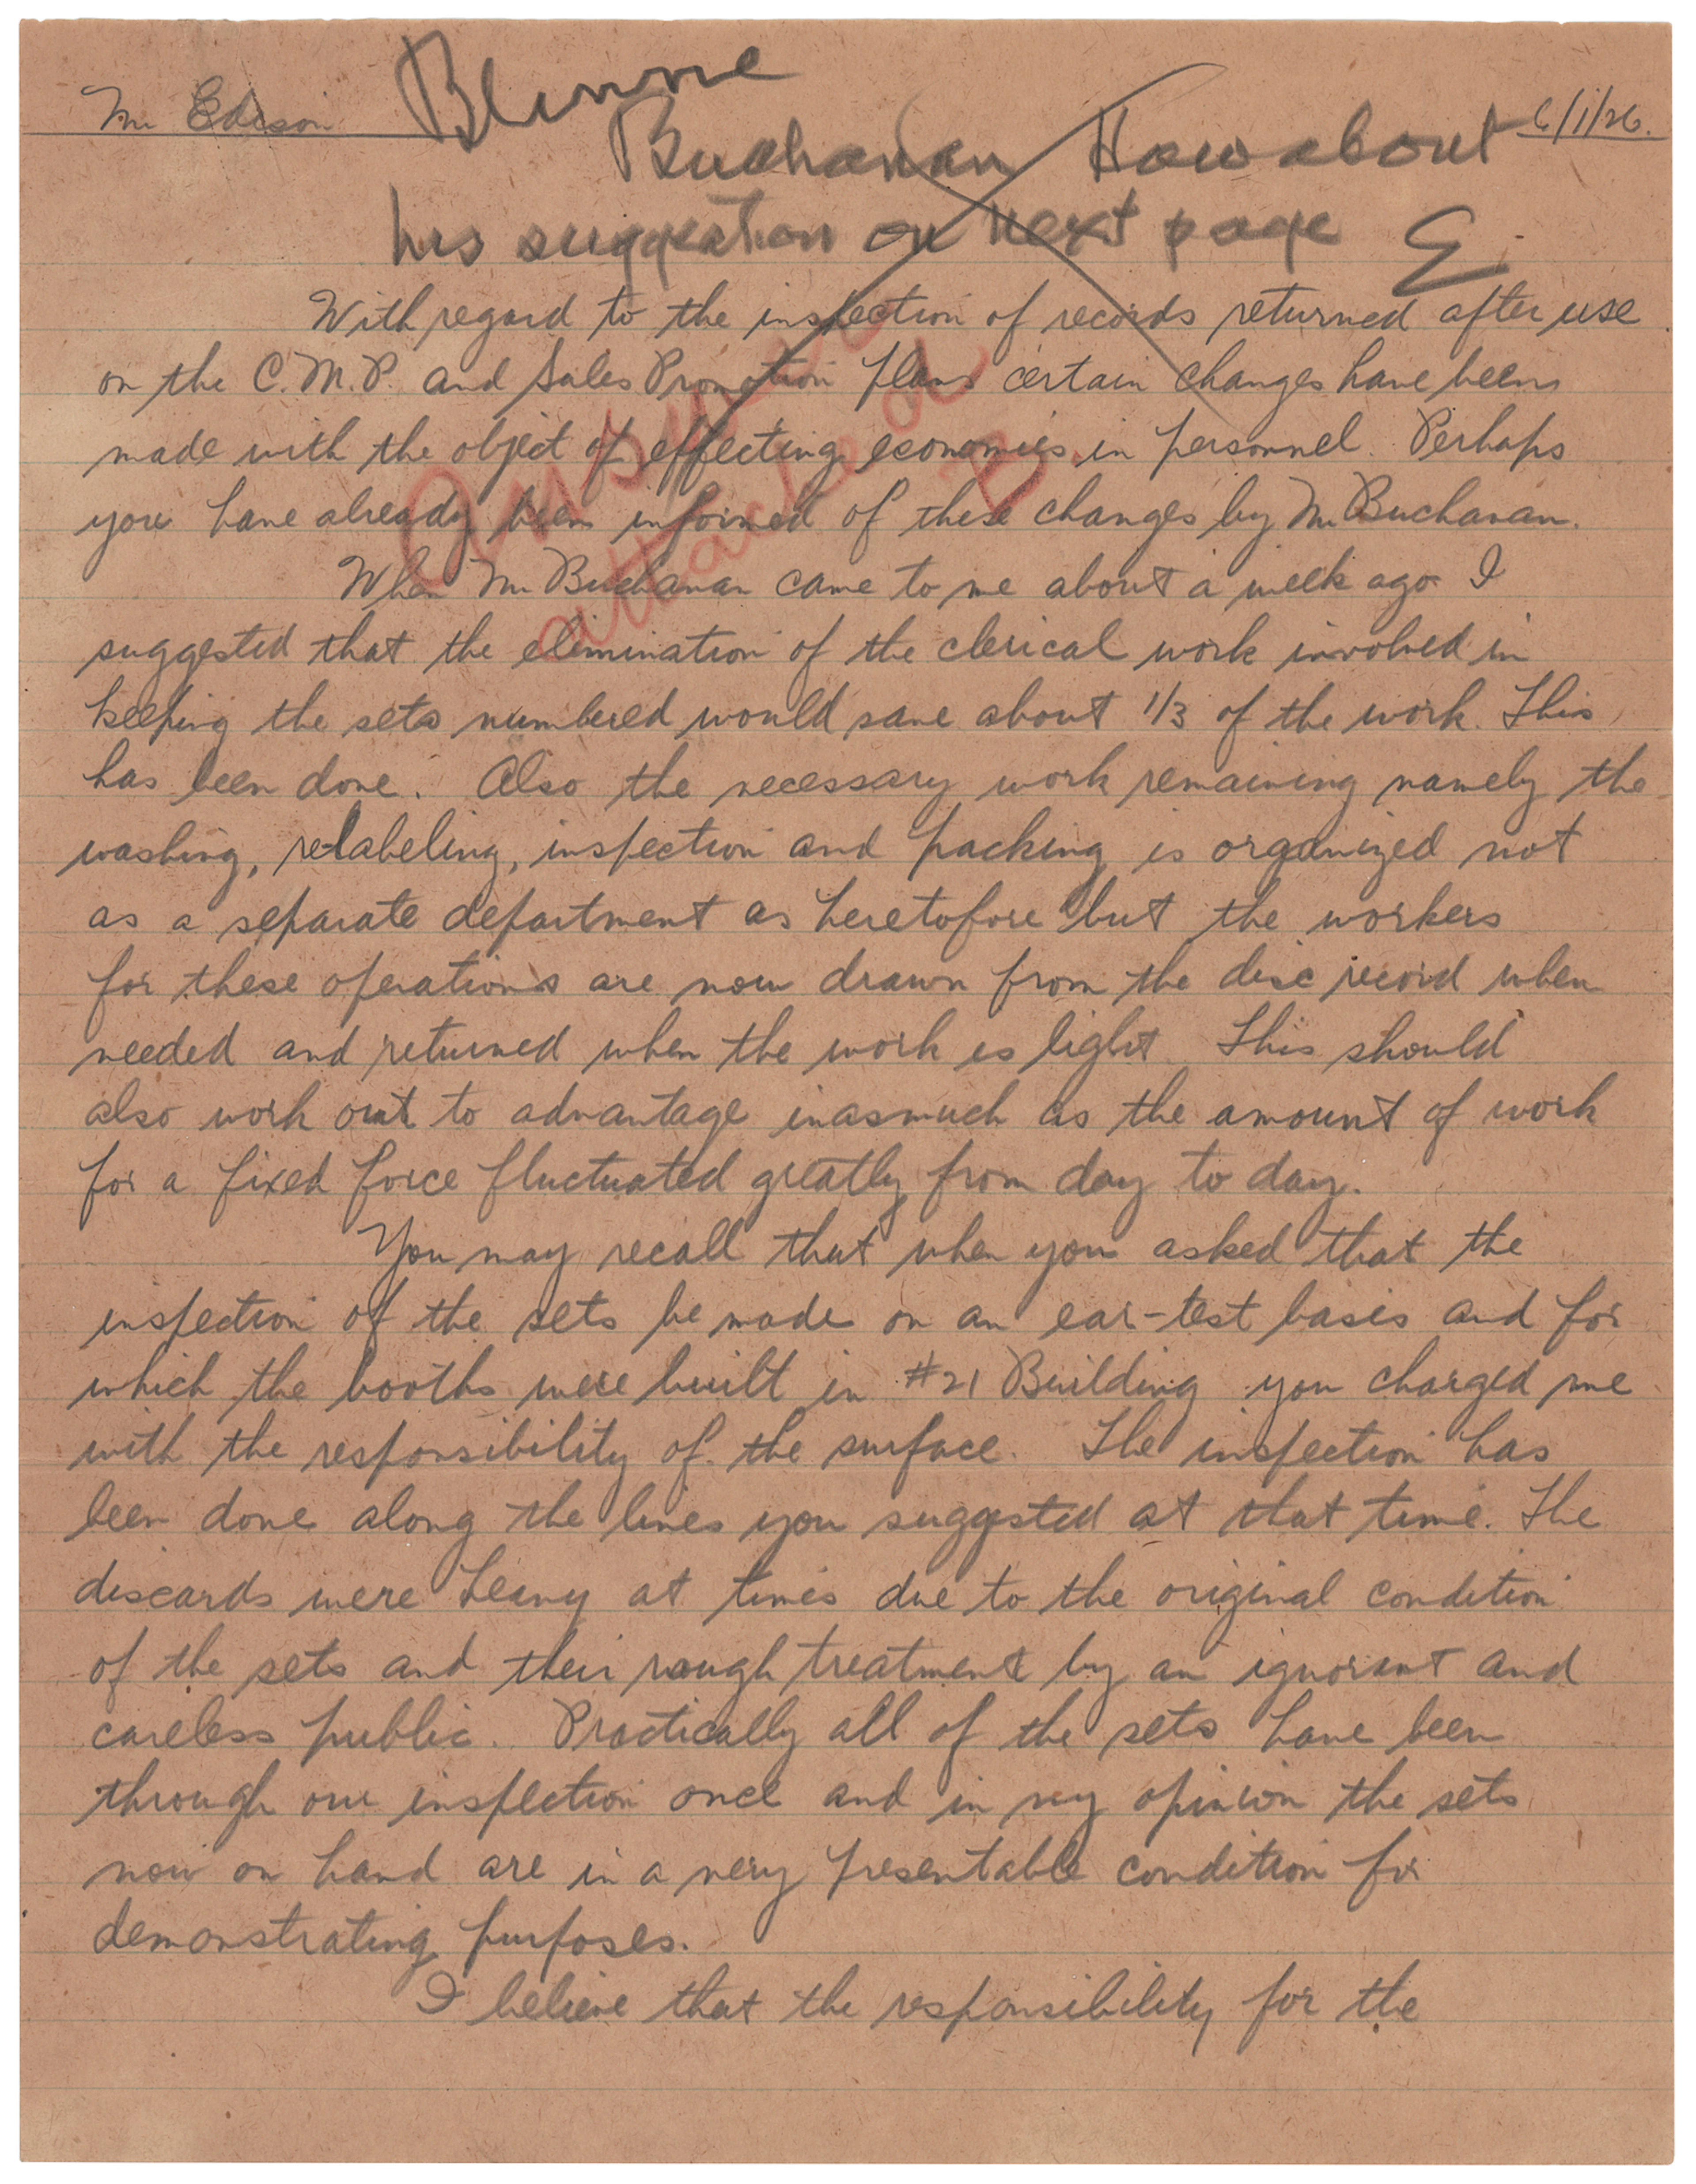 Mr Edison
6/1/26.
Buchanan How about
his suggestion on next page E
With regard to the inspection of records returned after use
on the C.M.P. and Sales Promotion Plans certain changes have been
made with the object of effecting economies in personnel. Perhaps
you have already been informed of these changes by Mr Buchanan.
When Mr Buchanan came to me about a week ago I
suggested that the elimination of the clerical work involved in
keeping the sets numbered would save about 1/3 of the work. This
has been done. Also the necessary work remaining namely the
washing, relabeling, inspection and packing is organized not
as a separate department as heretofore but the workers
for these operations are now drawn from the disc record when
needed and returned when the work is light. This should
also work out to advantage inasmuch as the amount of work
for a fixed force fluctuated greatly from day to day.
You may recall that when you asked that the
inspection of the sets be made on an ear-test basis and for
which the booths were built in #21 Building you charged me
with the responsibility of the surface. The inspection has
been done along the lines you suggested at that time. The
discards were heavy at times due to the original condition
of the sets and their rough treatment by an ignorant and
careless public. Practically all of the sets have been
through our inspection once and in my opinion the sets
now on hand are in a very presentable condition for
demonstrating purposes.
I believe that the responsibility for the
answer
attached
B.